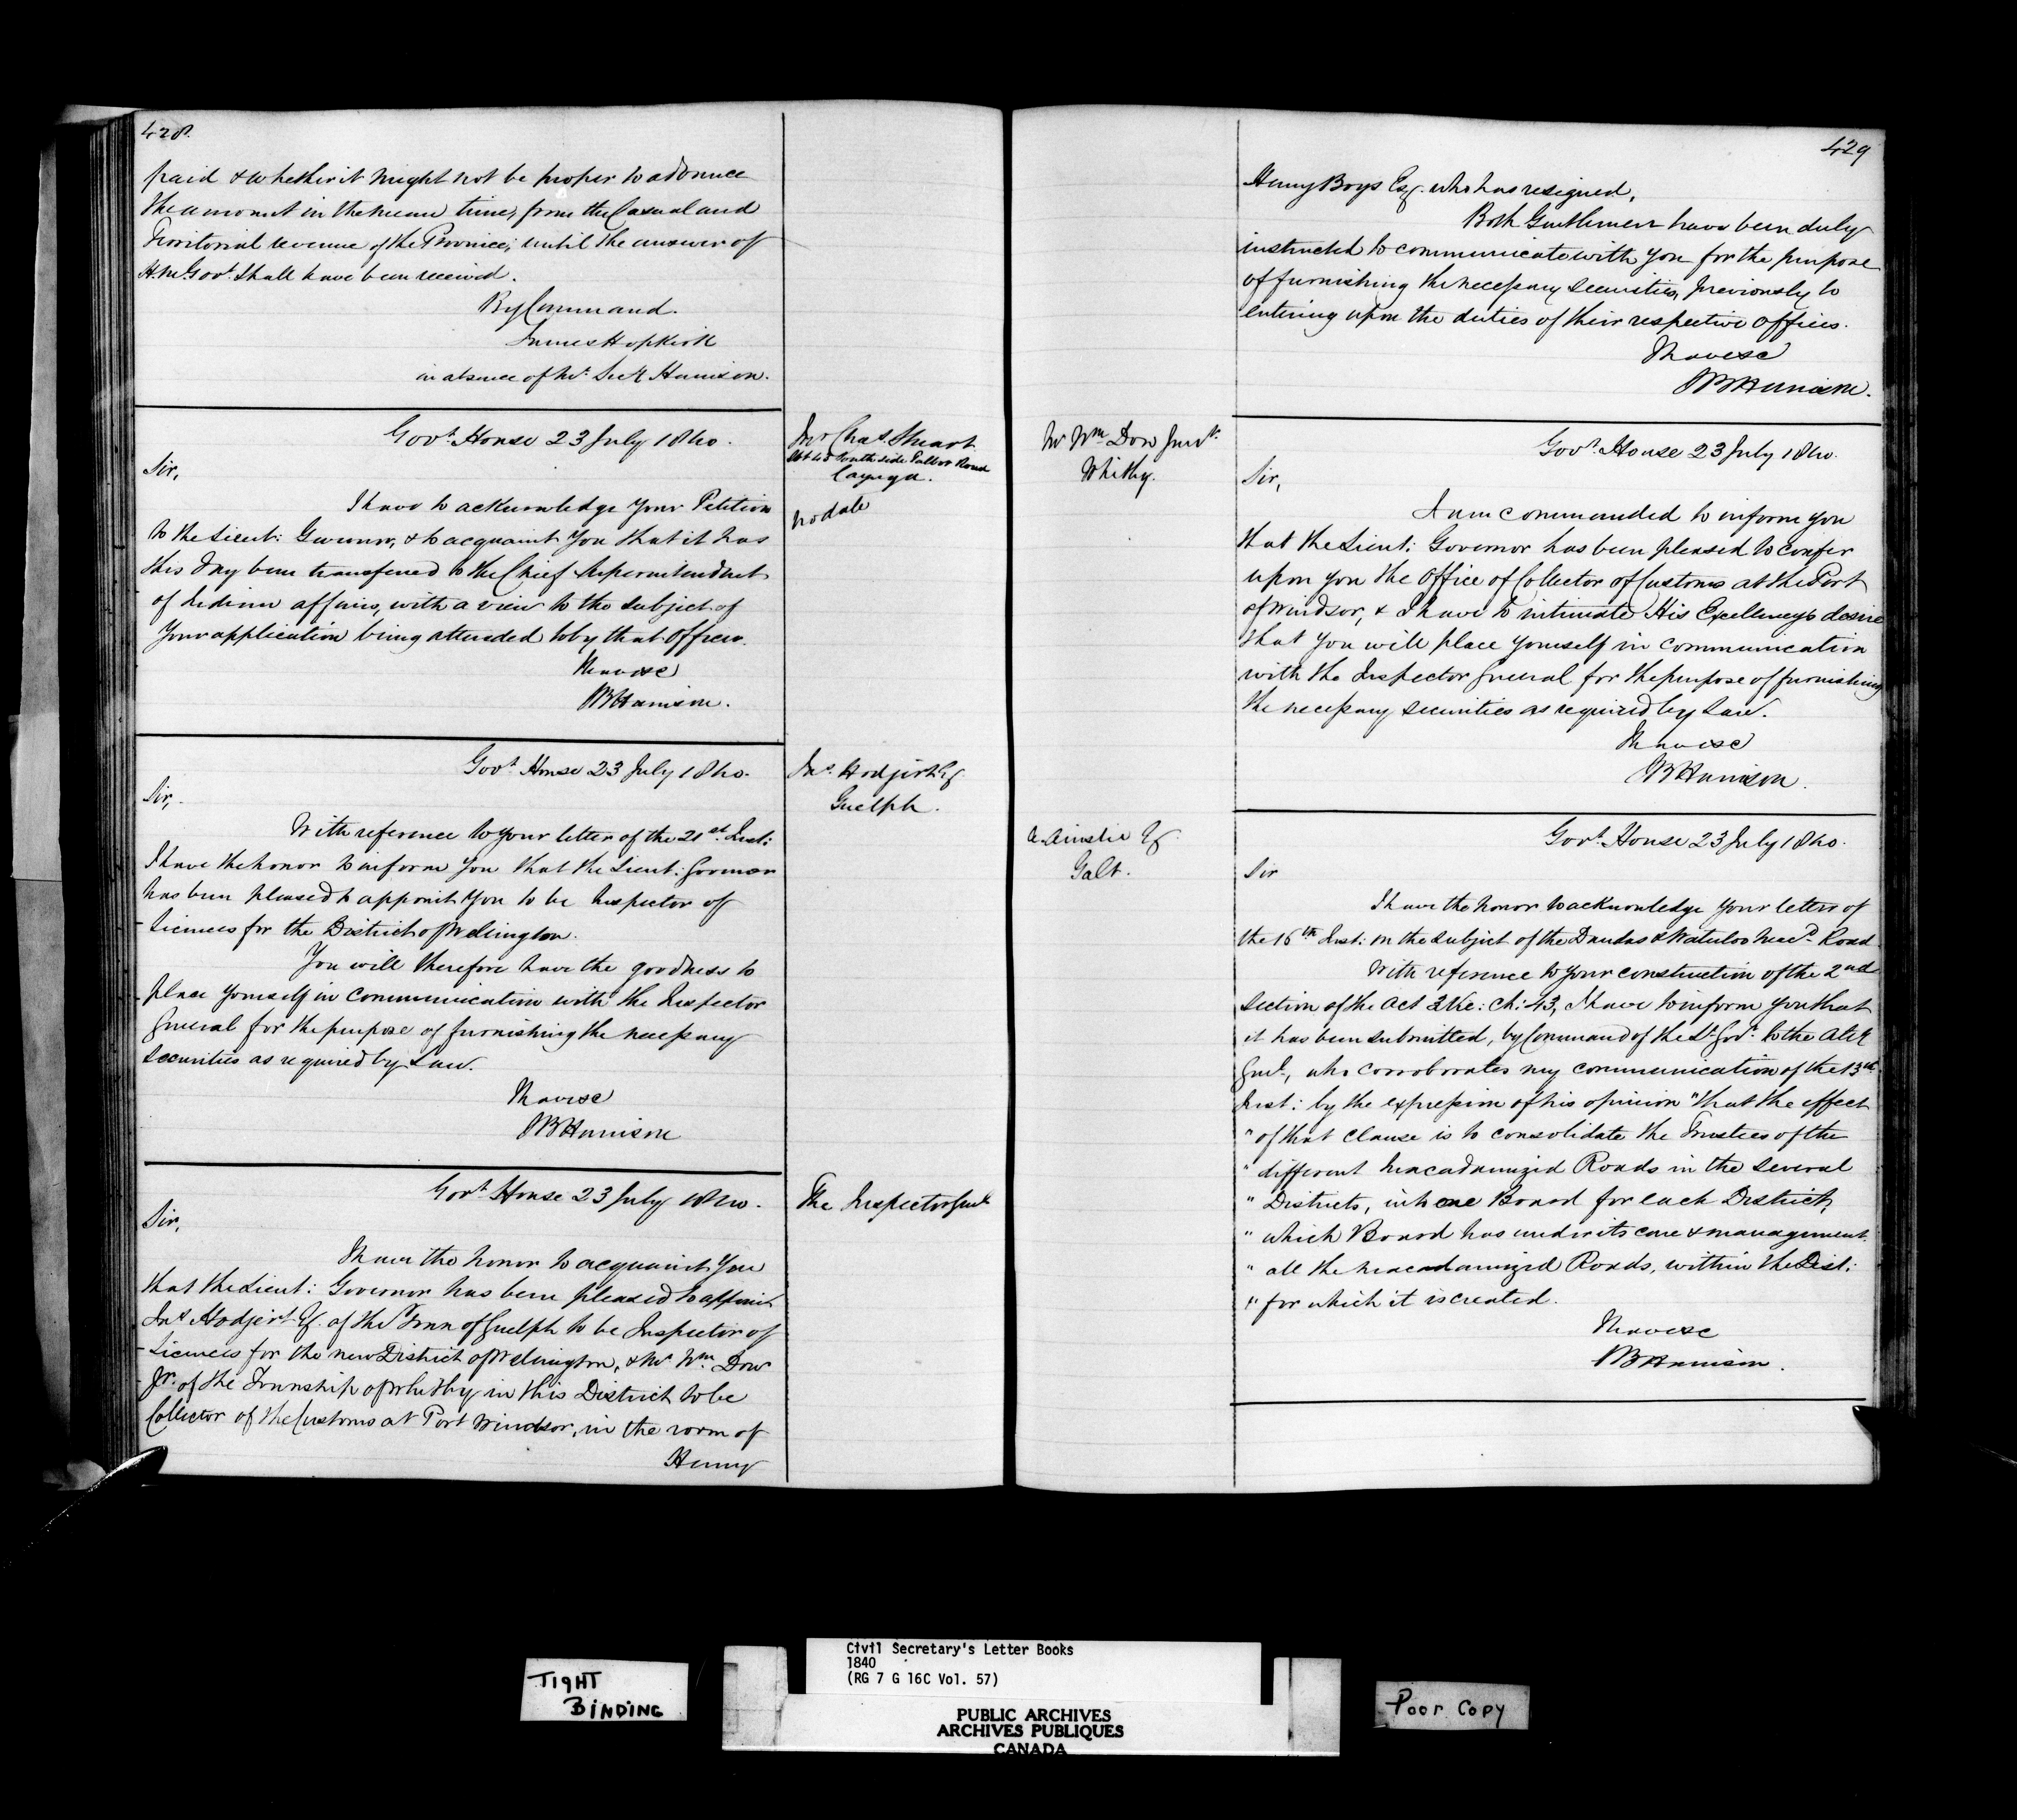 428.
paid & whether it might not be proper to advance
the amount in the mean time, from the Casual and
Territorial revenue of the Province, until the answer of
H. M. Govt. shall have been received.
By Command.
James Hopkirk
in absence of Mr. Secy Harrison.
Govt. House 23 July 1840.
Mr Chas. Stuart
Lot 45 South side Talbot Road
Cayuga.
no date
Sir,
I have to acknowledge your Petition
to the Lieut: Governor, & to acquaint you that it has
this day been transferred to the Chief Superintendent
of Indian affairs, with a view to the subject of
your application being attended to by that Officer.
I have &c
SB Harrison.
Govt. House 23 July 1840.
Jno. Hodgert Esq
Guelph.
Sir,
With reference to your letter of the 21st. Inst:
I have the honor to inform you that the Lieut: Governor
has been pleased to appoint you to be Inspector of
Licences for the District of Wellington.
You will therefore have the goodness to
place yourself in communication with the Inspector
General for the purpose of furnishing the necessary
securities as required by Law.
I have &c
SB Harrison
Govt. House 23 July 1840.
The Inspector Genl
Sir,
I have the honor to acquaint you
that the Lieut: Governor has been pleased to appoint
Jno. Hodgert Esq. of the Town of Guelph to be Inspector of
Licences for the new District of Wellington, & Mr Wm. Dow
Jr. of the Township of Whitby in this District to be
Collector of the Customs at Port Windsor, in the room of
Henry
429
Henry Boys Esq. who has resigned.
Both Gentlemen have been duly
instructed to communicate with you for the purpose
of furnishing the necessary securities, previously to
entering upon the duties of their respective offices.
I have &c
SB Harrison.
Mr Wm Dow Junr.
Whitby.
Govt. House 23 July 1840.
Sir,
I am commanded to inform you
that the Lieut: Governor has been pleased to confer
upon you the office of Collector of Customs at the Port
of Windsor, & I have to intimate His Excellency's desire
that you will place yourself in communication
with the Inspector General for the purpose of furnishing
the necessary securities as required by Law.
I have &c
SB Harrison.
A. Ainslie Esq.
Galt.
Govt. House 23 July 1840.
Sir
I have the honor to acknowledge your letter of
the 16th Inst: on the subject of the Dundas & Waterloo Macd. Road.
With reference to your construction of the 2nd
Section of the Act 3 Vic: Ch: 43, I have to inform you that
it has been submitted, by Command of the Lt. Govr. to the Atty
Genl., who corroborates my communication of the 13th
Inst: by the expression of his opinion "that the effect
" of that clause is to consolidate the Trustees of the
" different Macadamized Roads in the several
" Districts, into one Board for each District,
" which Board has under its care & management
" all the Macadamized Roads, within the Dist:
" for which it is created.
I have &c
SB Harrison.
TIGHT
BINDING
Civil Secretary's Letter Books
1840
(RG 7 G 16C Vol. 57)
PUBLIC ARCHIVES
ARCHIVES PUBLIQUES
CANADA
Poor Copy